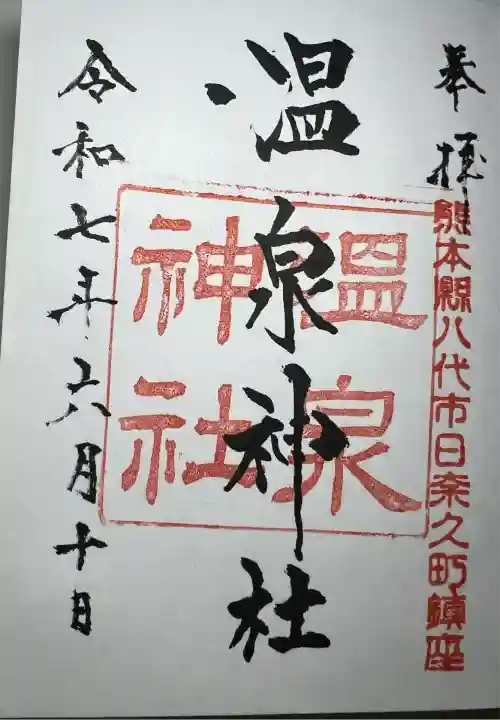 奉拝
熊本縣八代市日奈久町鎮座
温泉神社
温泉
神社
令和七年六月十日